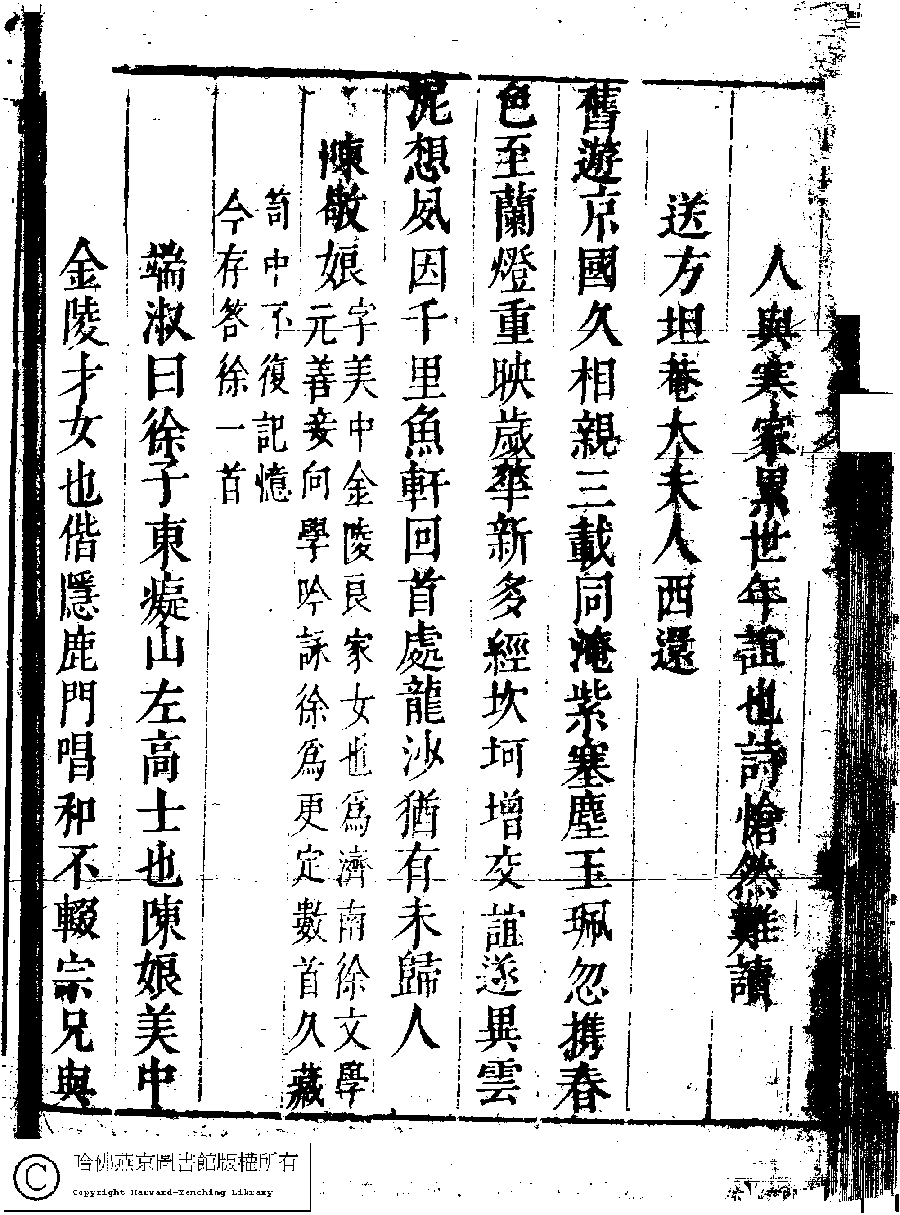 人與寒家累世年誼也詩愴然難讀
送方坦菴大夫人西還
舊遊京國久相親三載同淹紫塞塵玉珮忽携春
色至蘭燈重映歲華新多經坎坷增交誼遂異雲
泥想夙因千里魚軒回首處龍沙猶有未歸人
陳敬娘
字美中金陵良家女也爲濟南徐文學
元善妾向學吟詠徐爲更定數首久藏
笥中不復記憶
今存答徐一首
端淑曰徐子東癡山左高士也陳娘美中
金陵才女也偕隱鹿門唱和不輟宗兄與
哈佛燕京圖書館版權所有
Copyright Harvard-Yenching Library